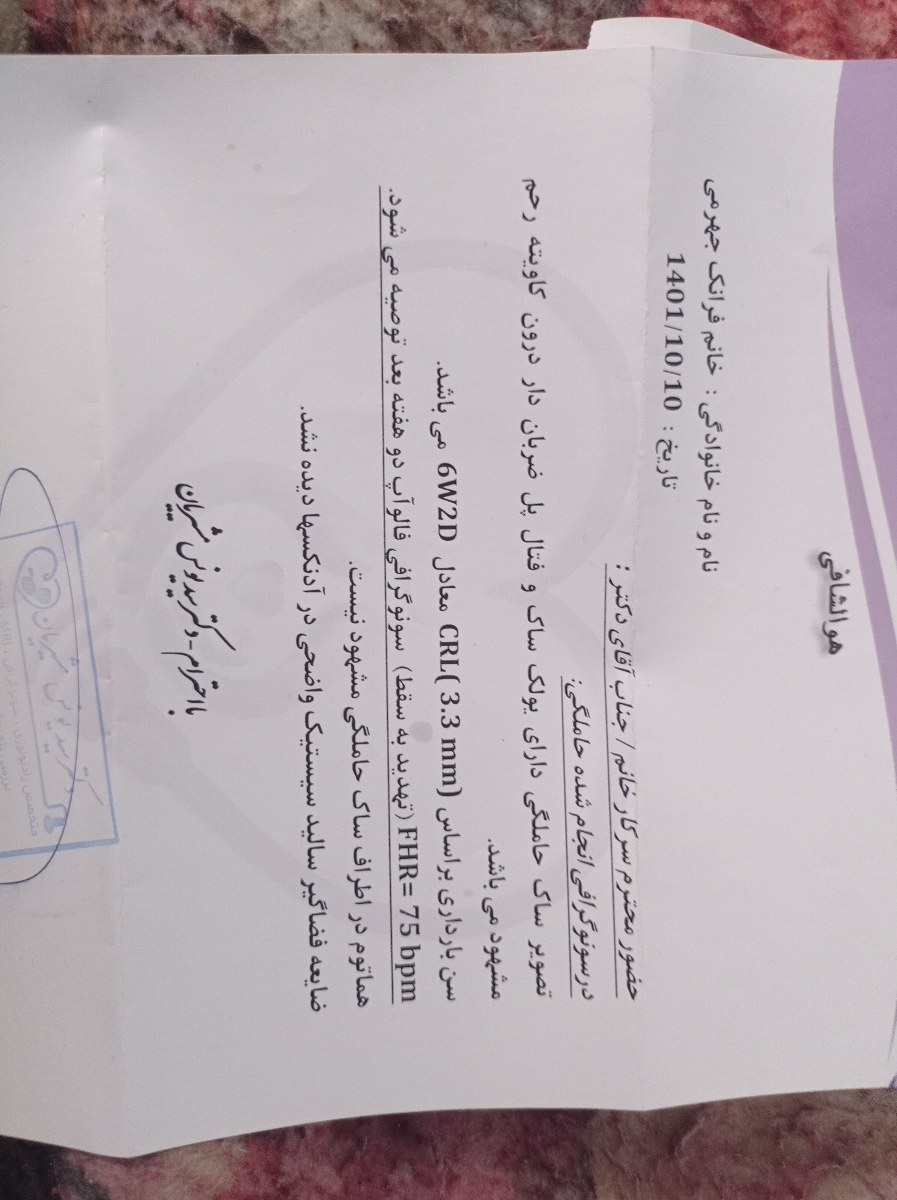 هوالشافی
نام و نام خانوادگی : خانم فرانک جهرمی
تاریخ : 1401/10/10
حضور محترم سرکار خانم / جناب آقای دکتر :
درسونوگرافی انجام شده حاملگی:
تصویر ساک حاملگی دارای یولک ساک و فتال پل ضربان دار درون کاویته رحم
مشهود می باشد.
سن بارداری براساس CRL( 3.3 mm) معادل 6W2D می باشد.
FHR= 75 bpm (تهدید به سقط) سونوگرافی فالوآپ دو هفته بعد توصیه می شود.
هماتوم در اطراف ساک حاملگی مشهود نیست.
ضایعه فضاگیر سالید سیستیک واضحی در آدنکسها دیده نشد.
بااحترام-دکتر یونس شیریان
دکتر یونس شیریان
متخصص رادیولوژی، سونوگرافی،
MRI